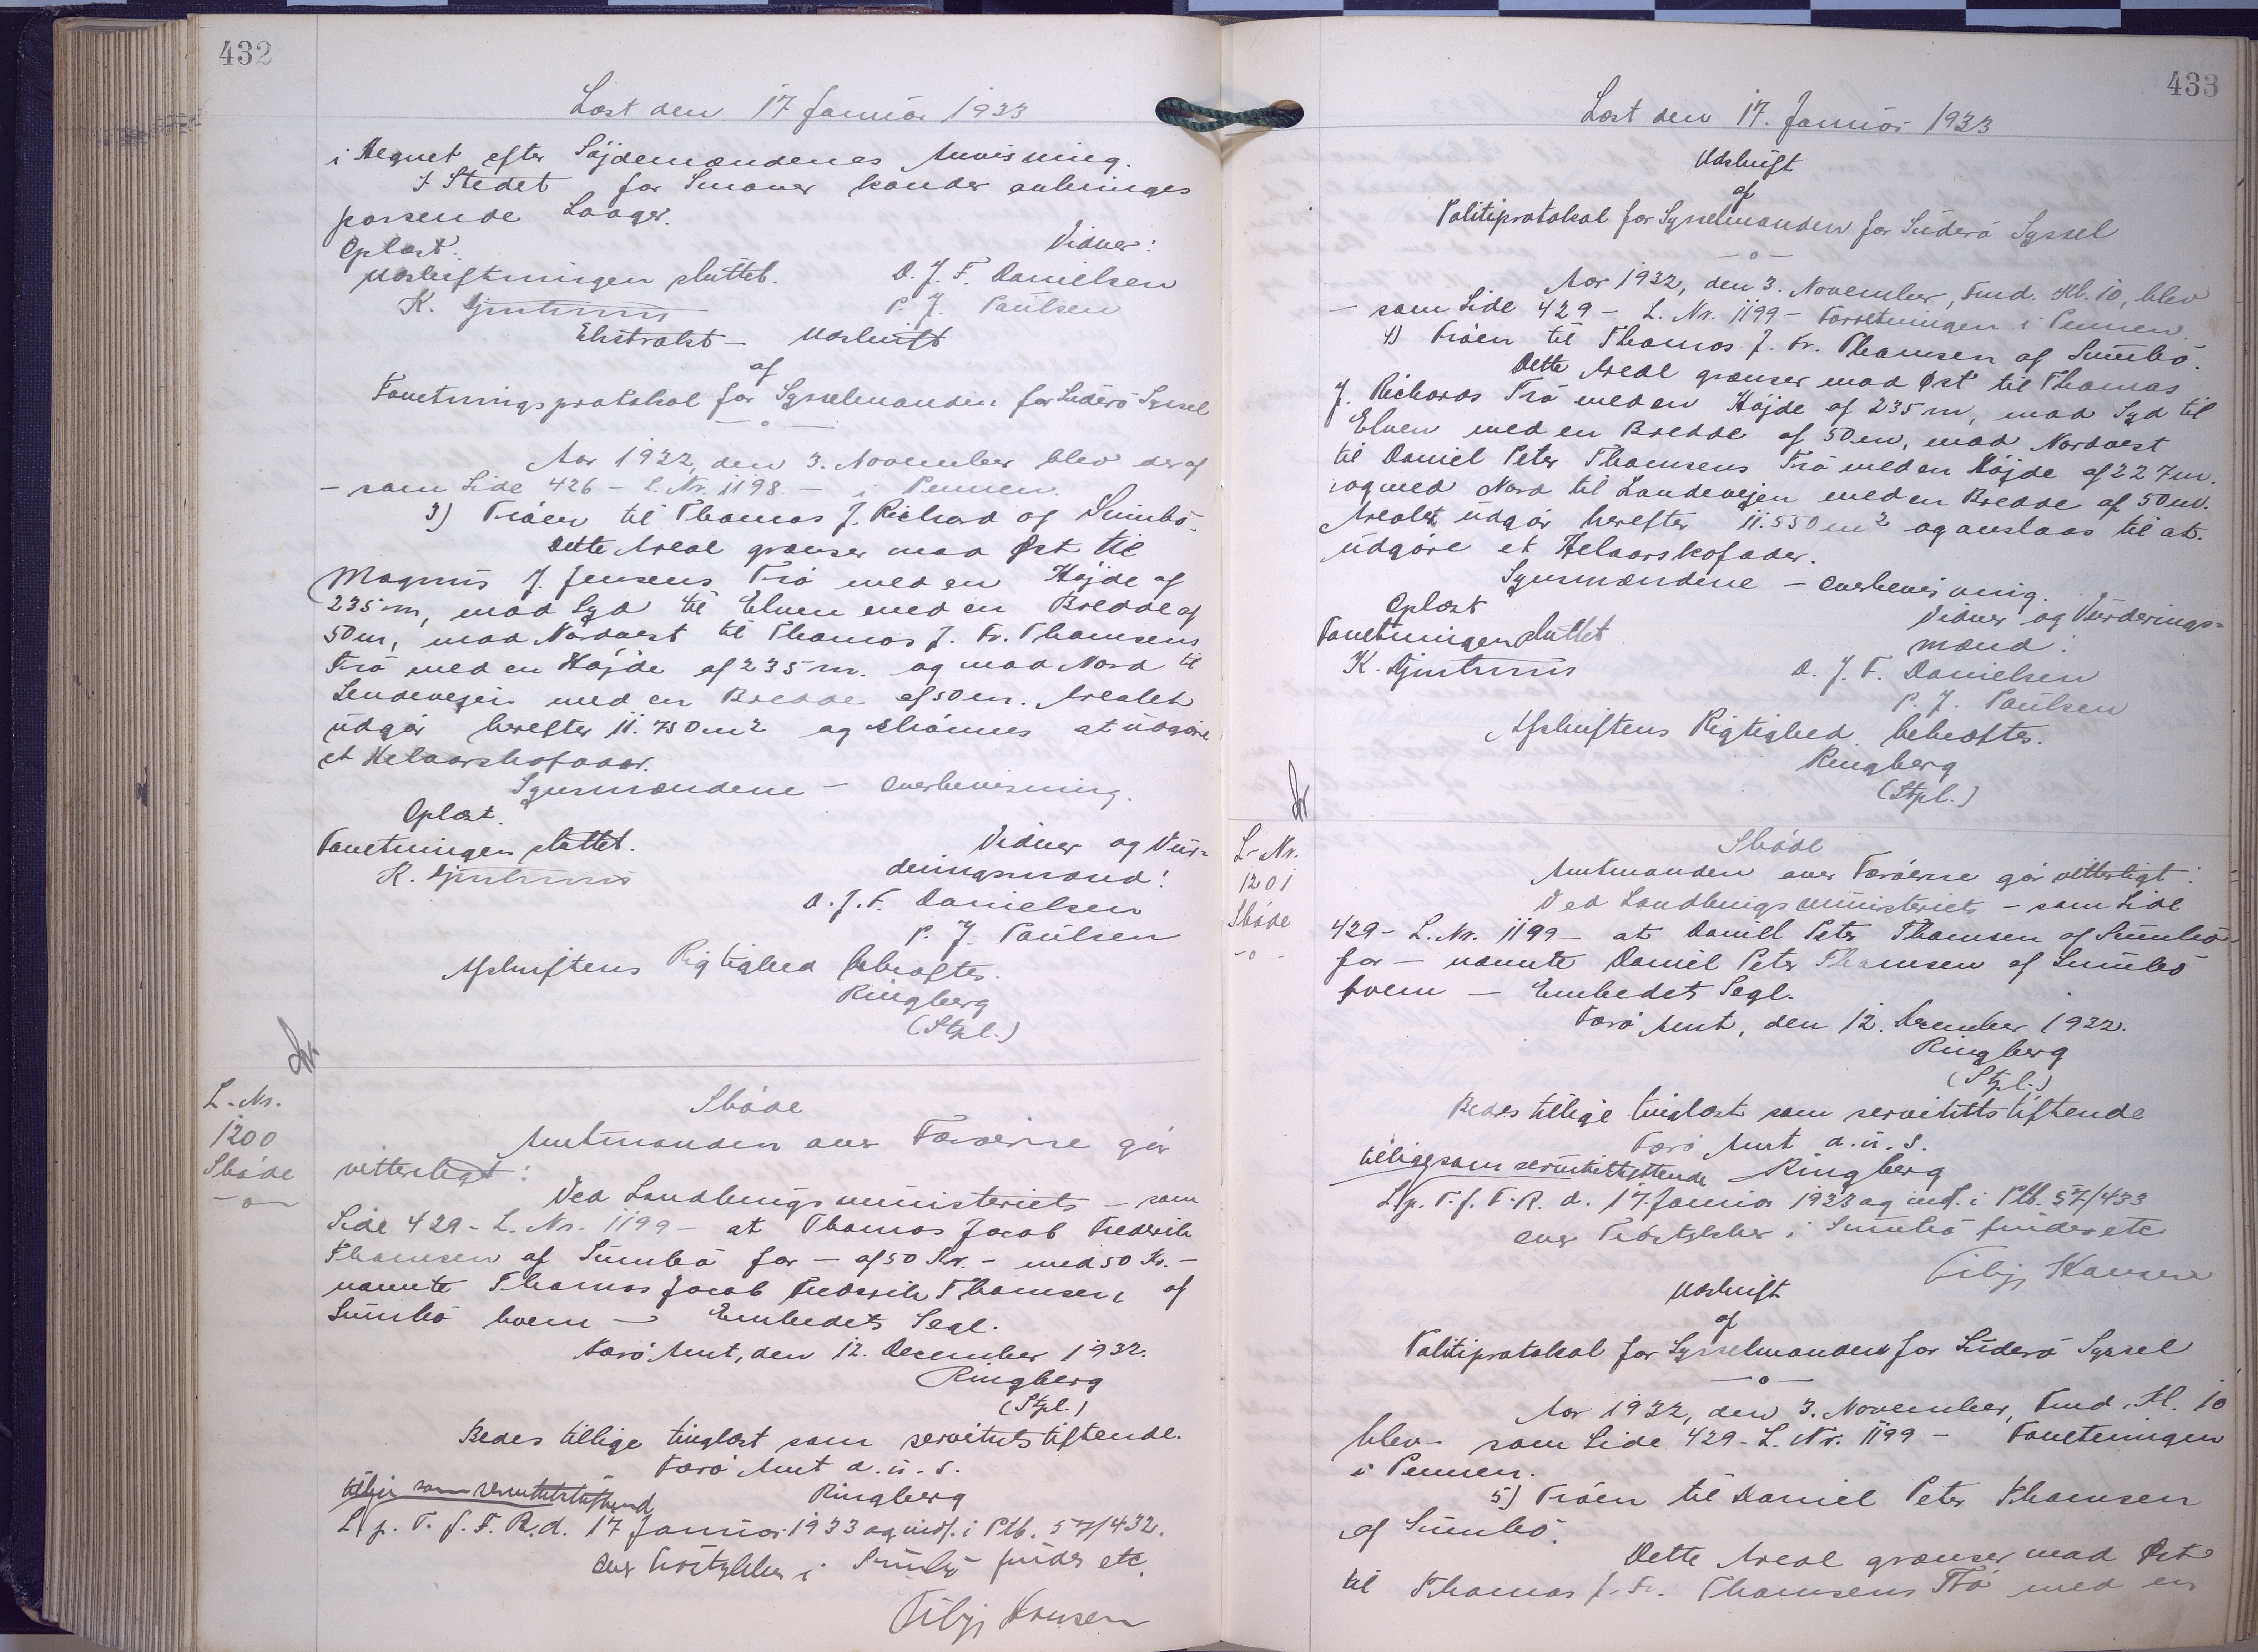 432
Læst den 17 Januar 1933
i Hegnet efter Söjdemændenes Anvisning.
I Stedet for Smaaer kander anbringes
passende Laager.
Oplæst.
Vidner:
Udskiftningen sluttet.
D. J. F. Danielsen
K.
P. J. Paulsen
Ekstrakt - Udskrift
af
Forretningsprotokol for Sysselmanden for Suderö Syssel
-o-
Aar 1932, den 3. November blev der af
- som Side 426 - L. Nr. 1198 - i Pennen.
3) Tröen til Thomas J. Richard af Sumbö.
Dette Areal grænser mod Øst til
Magnus J. Jensens Trö med en Höjde af
235 m, mod Syd til Elven med en Bredde af
50 m, mod Nordvest til Thomas J. Fr. Thomsens
Trö med en Höjde af 235 m. og mod Nord til
Landevejen med en Bredde af 50 m. Arealet
udgör herefter 11.750 m² og skönnes at udgöre
et Helaarskofoder.
Synsmændene - Overbevisning.
Oplæst.
Forretningen sluttet.
Vidner og Vur-
K.
deringsmænd:
D. J. F. Danielsen
P. J. Paulsen
Afskriftens Rigtighed bekræftes.
Ringberg
(Stpl.)
L. Nr.
1200
Sköde
-o-
Sköde
Amtmanden over Færöerne gör
vitterligt:
Ved Landbrugsministeriets - som
Side 429 - L. Nr. 1199 - at Thomas Jacob Frederik
Thomsen af Sumbö for - af 50 Kr. - med 50 Kr. -
nævnte Thomas Jacob Frederik Thomsen, af
Sumbö hvem - Embedets Segl.
Færö Amt, den 12. December 1932.
Ringberg
(Stpl.)
Bedes tillige tinglæst som servitutstiftende.
Færö Amt d. u. s.
Ringberg
tillige som servitutstiftend
L. p. T. f. F. R. d. 17 Januar 1933 og indf. i Ptb. 57/432.
over Tröstykker i Sumbö findes etc.
Hansen
433
Læst den 17. Januar 1933
Udskrift
af
Politiprotokol for Sysselmanden for Suderö Syssel
-o-
Aar 1932, den 3. November, Fmd. Kl. 10, blev
- som Side 429 - L. Nr. 1199 - Forretningen i Pennen.
4) Tröen til Thomas J. Fr. Thomsen af Sumbö.
Dette Areal grænser mod Øst til Thomas
J. Richards Trö med en Höjde af 235 m, mod Syd til
Elven med en Bredde af 50 m, mod Nordvest
til Daniel Peter Thomsens Trö med en Höjde af 227 m.
og med Nord til Landevejen med en Bredde af 50 m.
Arealet udgör herefter 11.550 m² og anslaas til at
udgöre et Helaarskofoder.
Synsmændene - Overbevisning.
Oplæst
Vidner og Vurderings=
Forretningen sluttet
mænd:
K.
D. J. F. Danielsen
P. J. Paulsen
Afskriftens Rigtighed bekræftes.
Ringberg
(Stpl.)
L. Nr.
1201
Sköde
-o-
Sköde
Amtmanden over Færöerne gör vitterligt:
Ved Landbrugsministeriets - som Side
429 - L. Nr. 1199 - at Daniel Peter Thomsen af Sumbö
for - nævnte Daniel Peter Thomsen af Sumbö
hvem - Embedets Segl.
Færö Amt, den 12. December 1932.
Ringberg
(Stpl.)
Bedes tillige tinglæst som servitutstiftende
Færö Amt d. u. s.
tillige som servitutstiftende Ringberg
L. p. T. f. F. R. d. 17. Januar 1933 og indf. i Ptb. 57/433
over Tröstykker i Sumbö findes etc
Hansen
Udskrift
af
Politiprotokol for Sysselmanden for Suderö Syssel
-o-
Aar 1932, den 3. November, Fmd. Kl. 10
blev - som Side 429 - L. Nr. 1199 - Forretningen
i Pennen.
5) Tröen til Daniel Peter Thomsen
af Sumbö.
Dette Areal grænser mod Øst
til Thomas J. Fr. Thomsens Trö med en